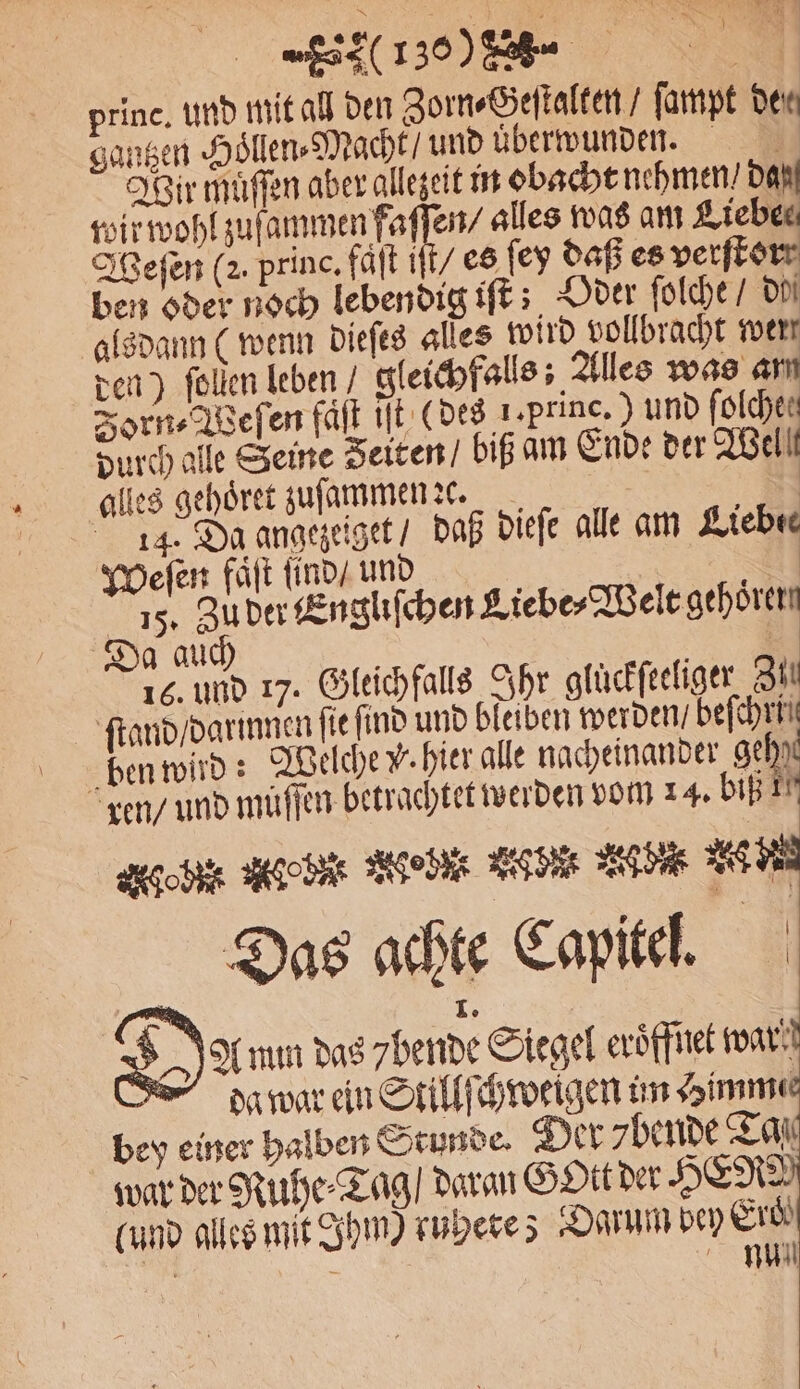 (130)
princ. und mit all den Zorn-Geſtalten / ſampt der
gantzen Hoͤllen-Macht / und uͤberwunden.
Wir muͤſſen aber allezeit in obacht nehmen / daß
wir wohl zuſammen faſſen / alles was am Liebe-
Weſen (2. princ. faͤſt iſt / es ſey daß es verſtor-
ben oder noch lebendig iſt; Oder ſolche / die
alsdann (wenn dieſes alles wird vollbracht wer-
den) ſollen leben / gleichfalls; Alles was am
Zorn-Weſen faͤſt iſt (des 1. princ.) und ſolches
durch alle Seine Zeiten / biß am Ende der Welt
alles gehoͤret zuſammen ꝛc.
14. Da angezeiget / daß dieſe alle am Liebe-
Weſen faͤſt ſind / und
15. Zu der Engliſchen Liebe-Welt gehoͤren
Da auch
16. und 17. Gleichfalls Ihr gluͤckſeeliger Zu-
ſtand / darinnen ſie ſind und bleiben werden / beſchrie-
ben wird: Welche ℣. hier alle nacheinander gehoͤ-
ren / und muͤſſen betrachtet werden vom 14. biß
Das achte Capitel.
1.
DA nun das 7bende Siegel eroͤffnet ward
da war ein Stillſchweigen im Himmel
bey einer halben Stunde. Der 7bende Tag
war der Ruhe-Tag / daran GOtt der HERR
(und alles mit Ihm) ruhete; Darum bey Eroͤff-
nun